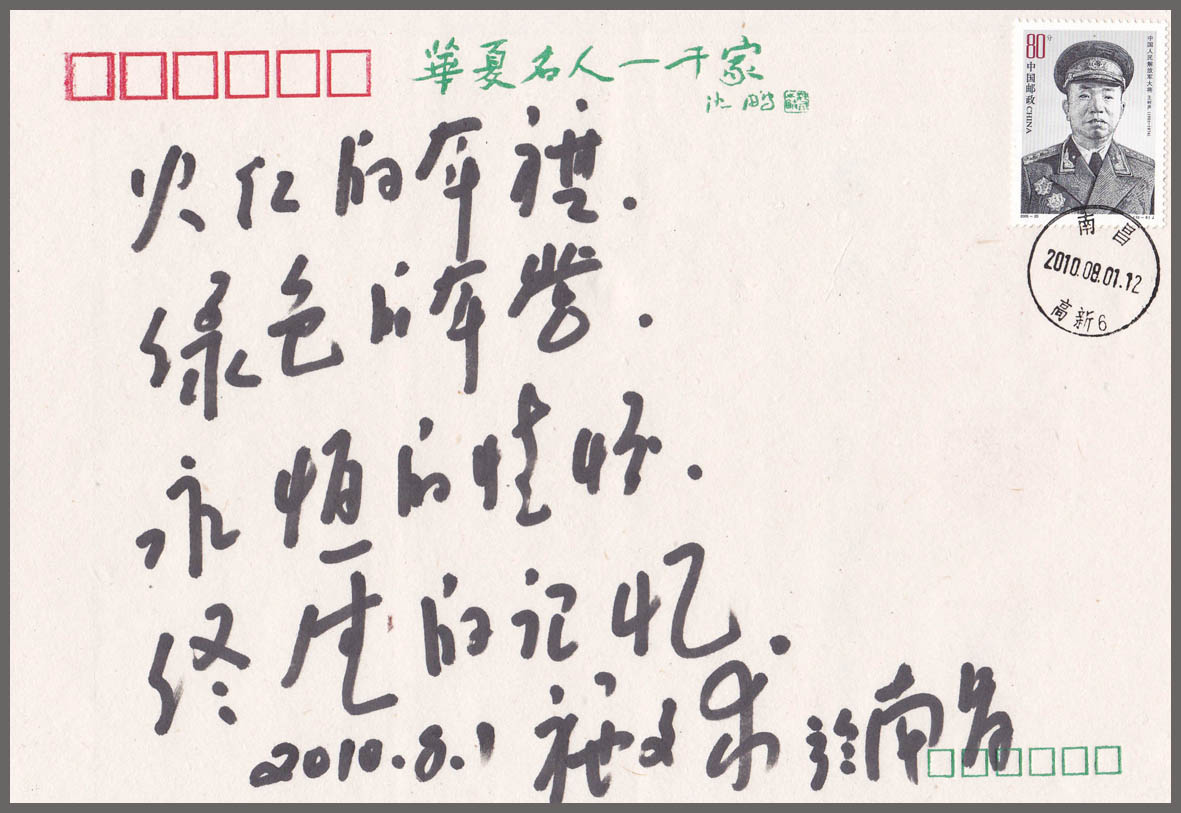 華夏名人一千家
沈鹏
80分
中国邮政 CHINA
中国人民解放军大将
南昌
2010.08.01.12
高新6
火红的军旗.
绿色的军营.
永恒的情怀.
终生的记忆.
2010.8.1 於南昌